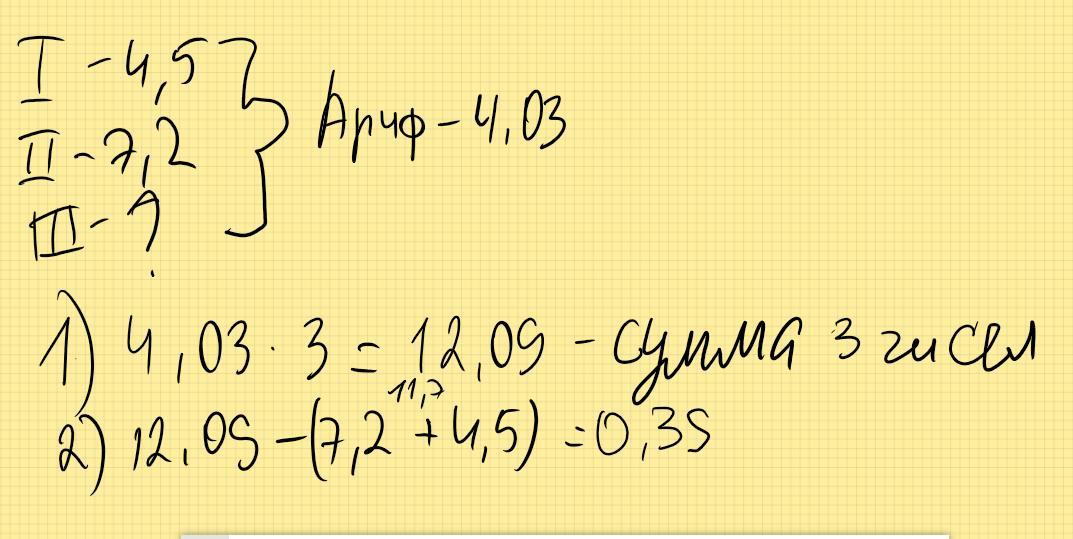 I - 4,5
II - 7,2
III - ?
Ариф - 4,03
1) 4,03 · 3 = 12,09 - сумма 3 чисел
11,7
2) 12,09 - (7,2 + 4,5) = 0,39